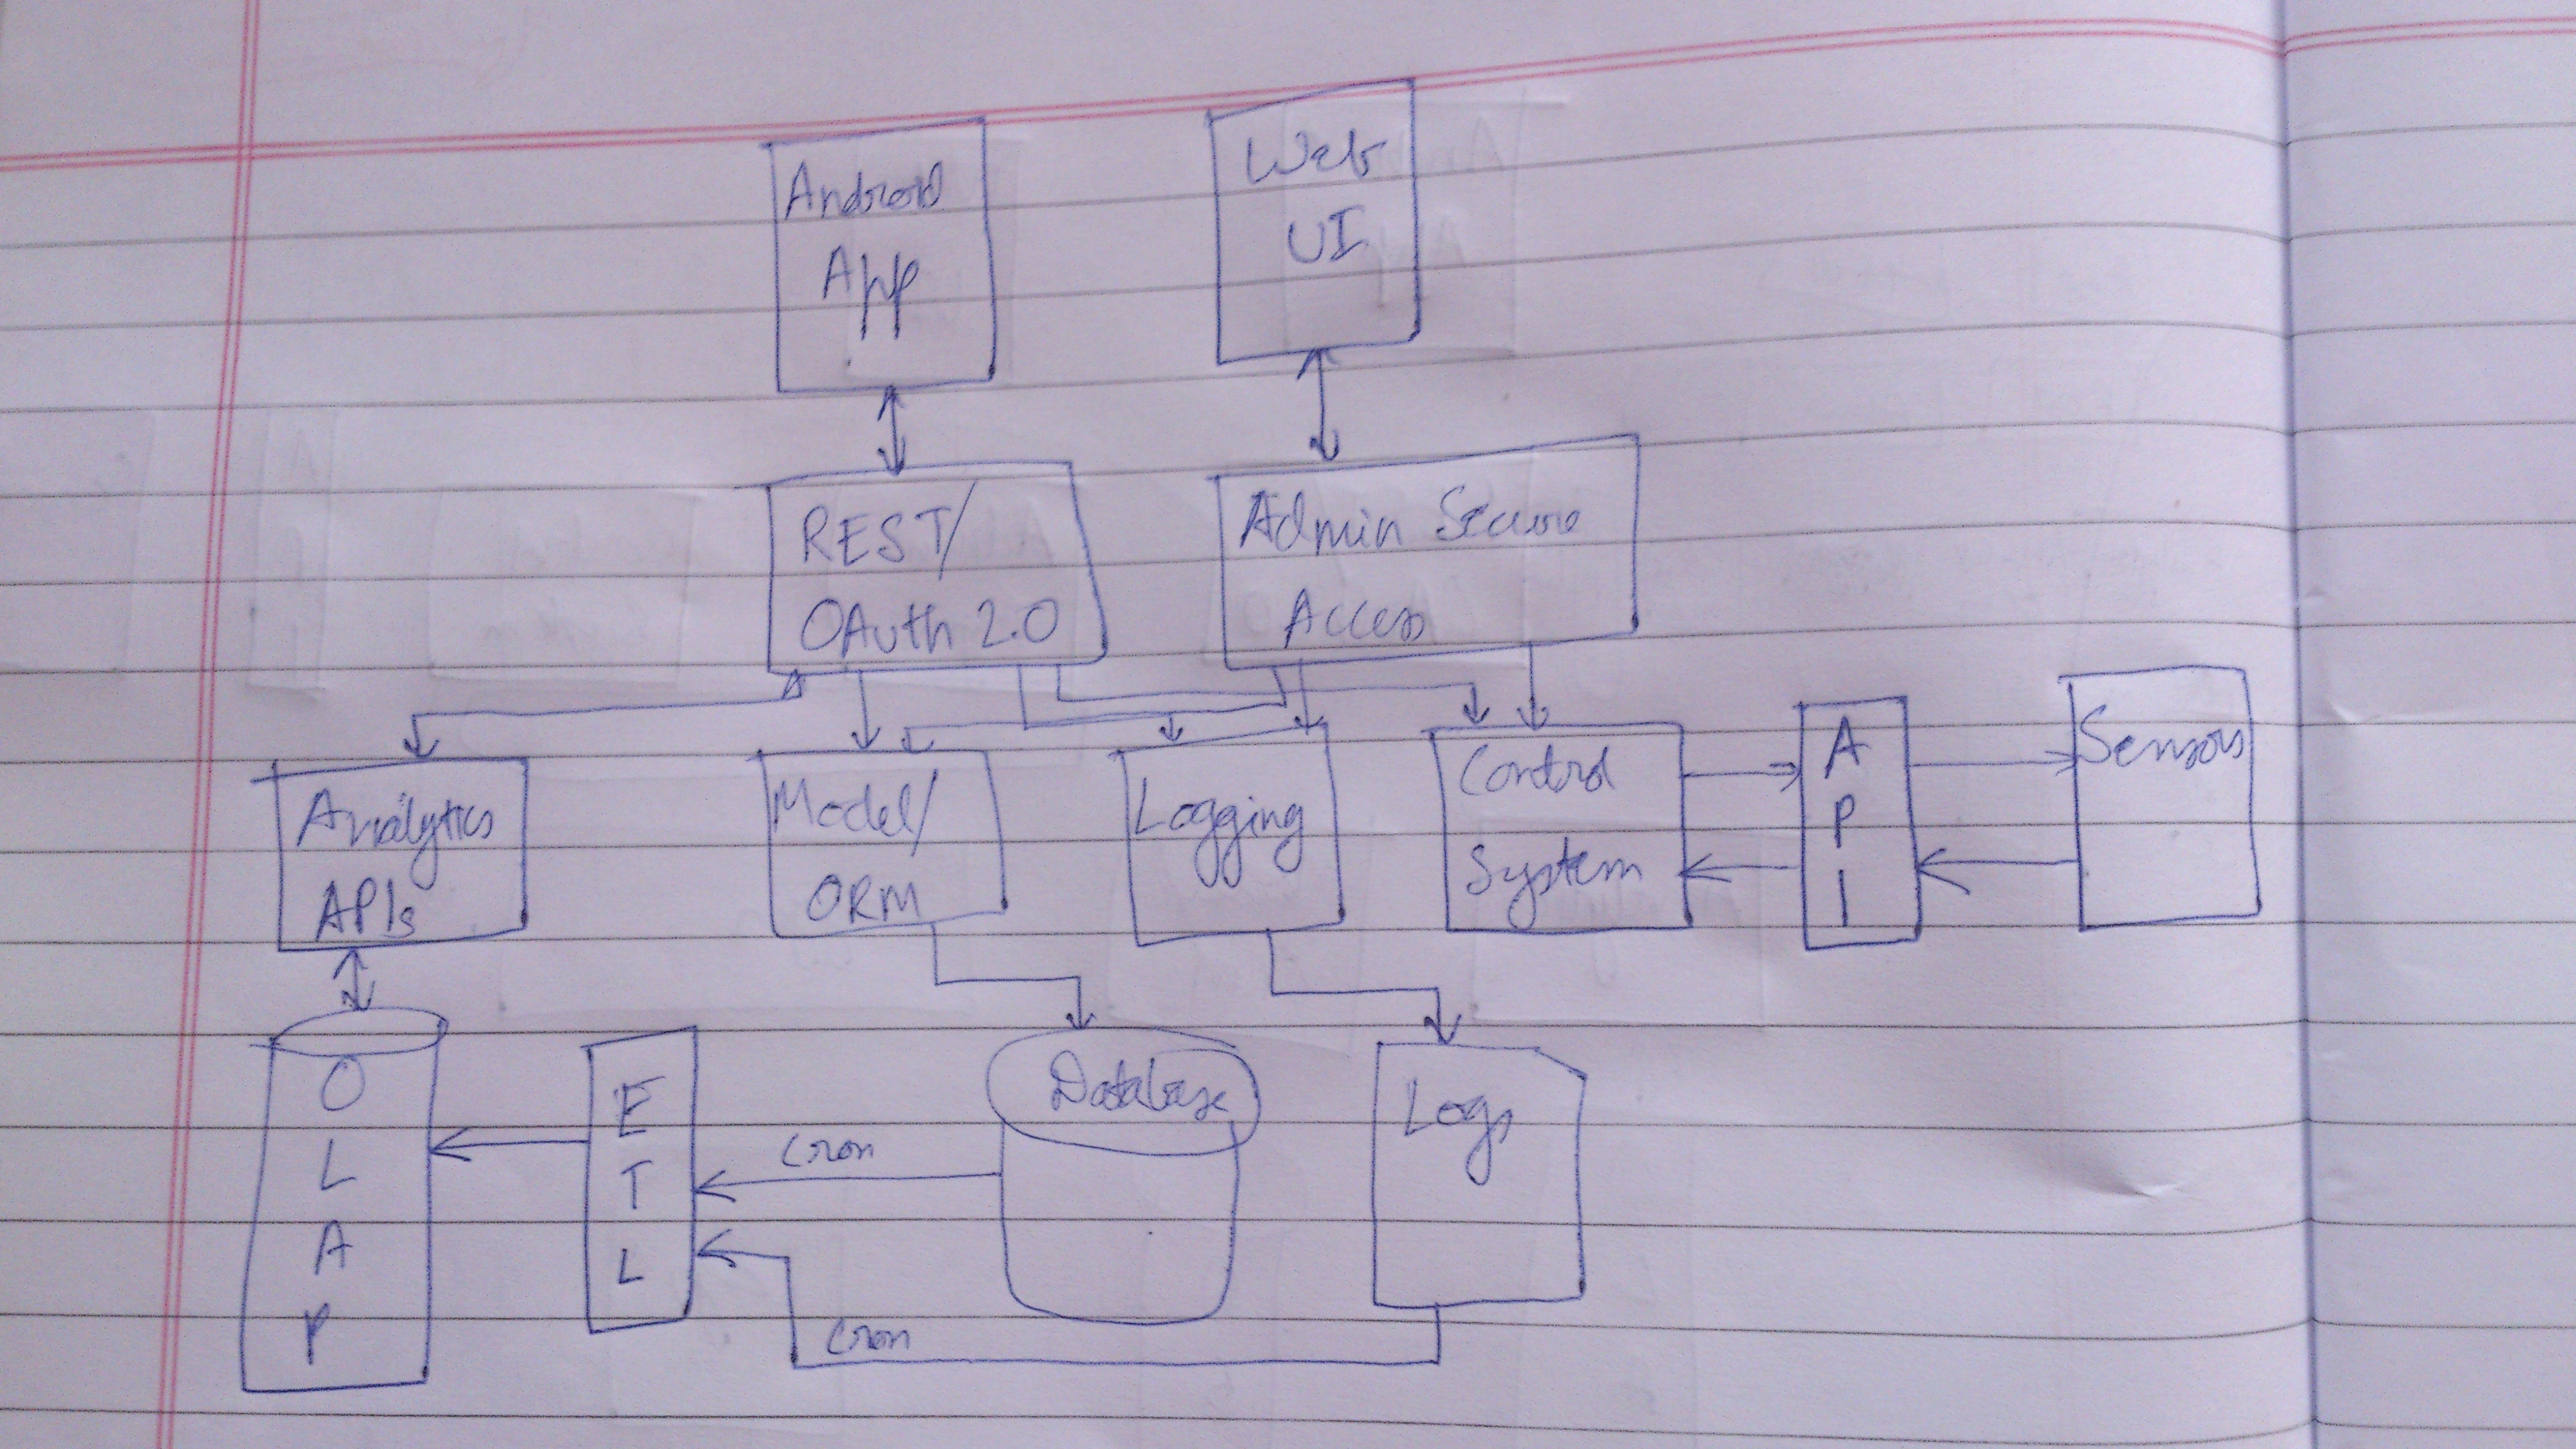 Android
App
Web
UI
REST/
OAuth 2.0
Admin Secure
Access
Analytics
APIs
Model/
ORM
Logging
Control
System
A
P
I
Sensors
O
L
A
P
E
T
L
Cron
Database
Logs
Cron